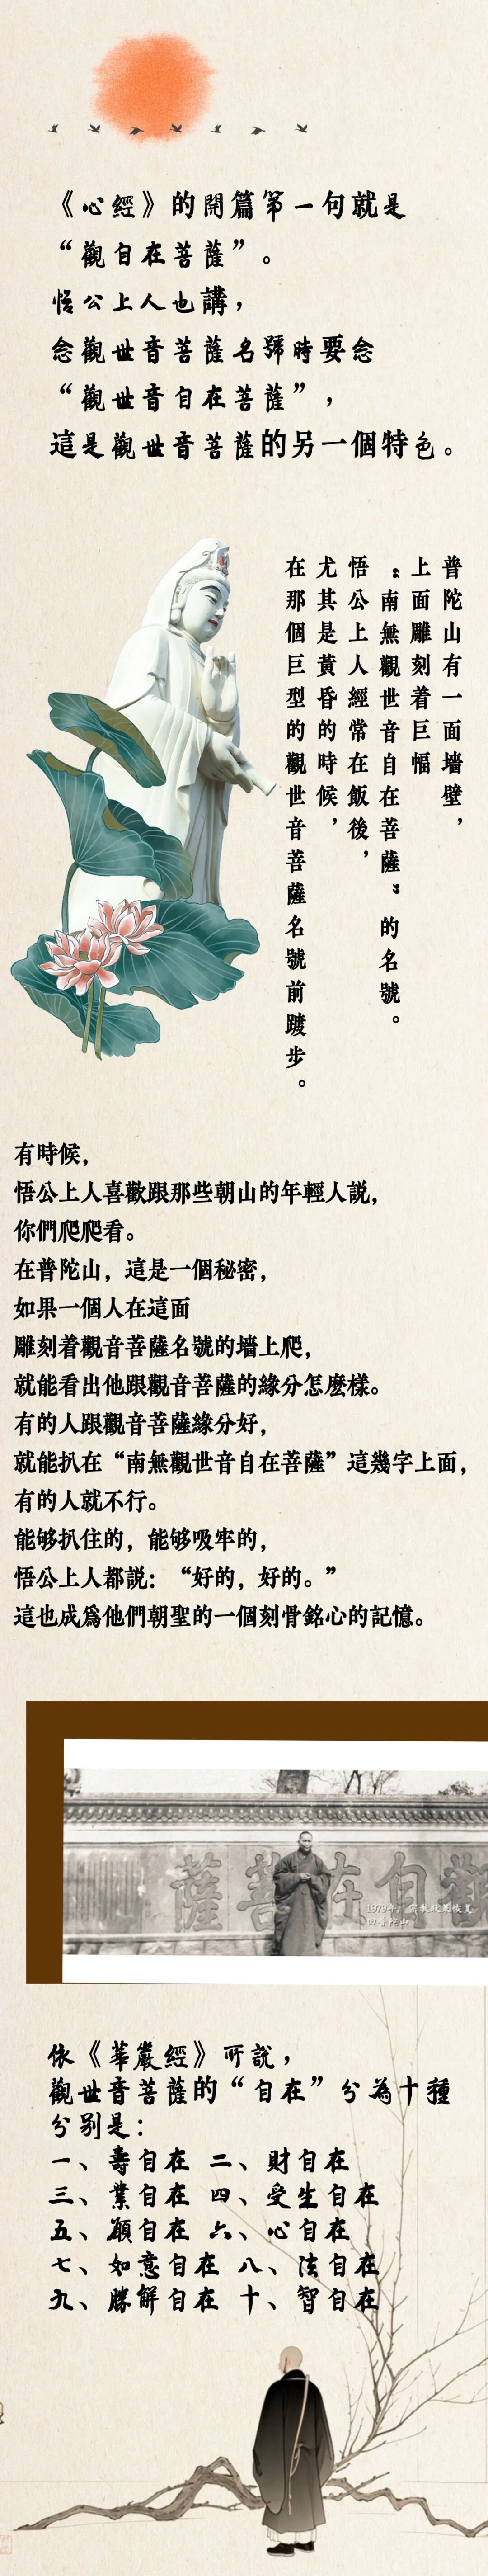 《心經》的開篇第一句就是
“觀自在菩薩”。
悟公上人也講，
念觀世音菩薩名號時要念
“觀世音自在菩薩”，
這是觀世音菩薩的另一個特色。
普陀山有一面墻壁，
上面雕刻着巨幅
“南無觀世音自在菩薩”的名號。
悟公上人經常在飯後，
尤其是黃昏的時候，
在那個巨型的觀世音菩薩名號前踱步。
有時候，
悟公上人喜歡跟那些朝山的年輕人説，
你們爬爬看。
在普陀山，這是一個秘密，
如果一個人在這面
雕刻着觀音菩薩名號的墻上爬，
就能看出他跟觀音菩薩的緣分怎麽樣。
有的人跟觀音菩薩緣分好，
就能扒在“南無觀世音自在菩薩”這幾字上面，
有的人就不行。
能够扒住的，能够吸牢的，
悟公上人都説：“好的，好的。”
這也成爲他們朝聖的一個刻骨銘心的記憶。
薩菩在自觀
1979年，宗教政策恢復
回普陀山
依《華嚴經》所説，
觀世音菩薩的“自在”分為十種
分别是：
一、壽自在 二、財自在
三、業自在 四、受生自在
五、願自在 六、心自在
七、如意自在 八、法自在
九、勝解自在 十、智自在